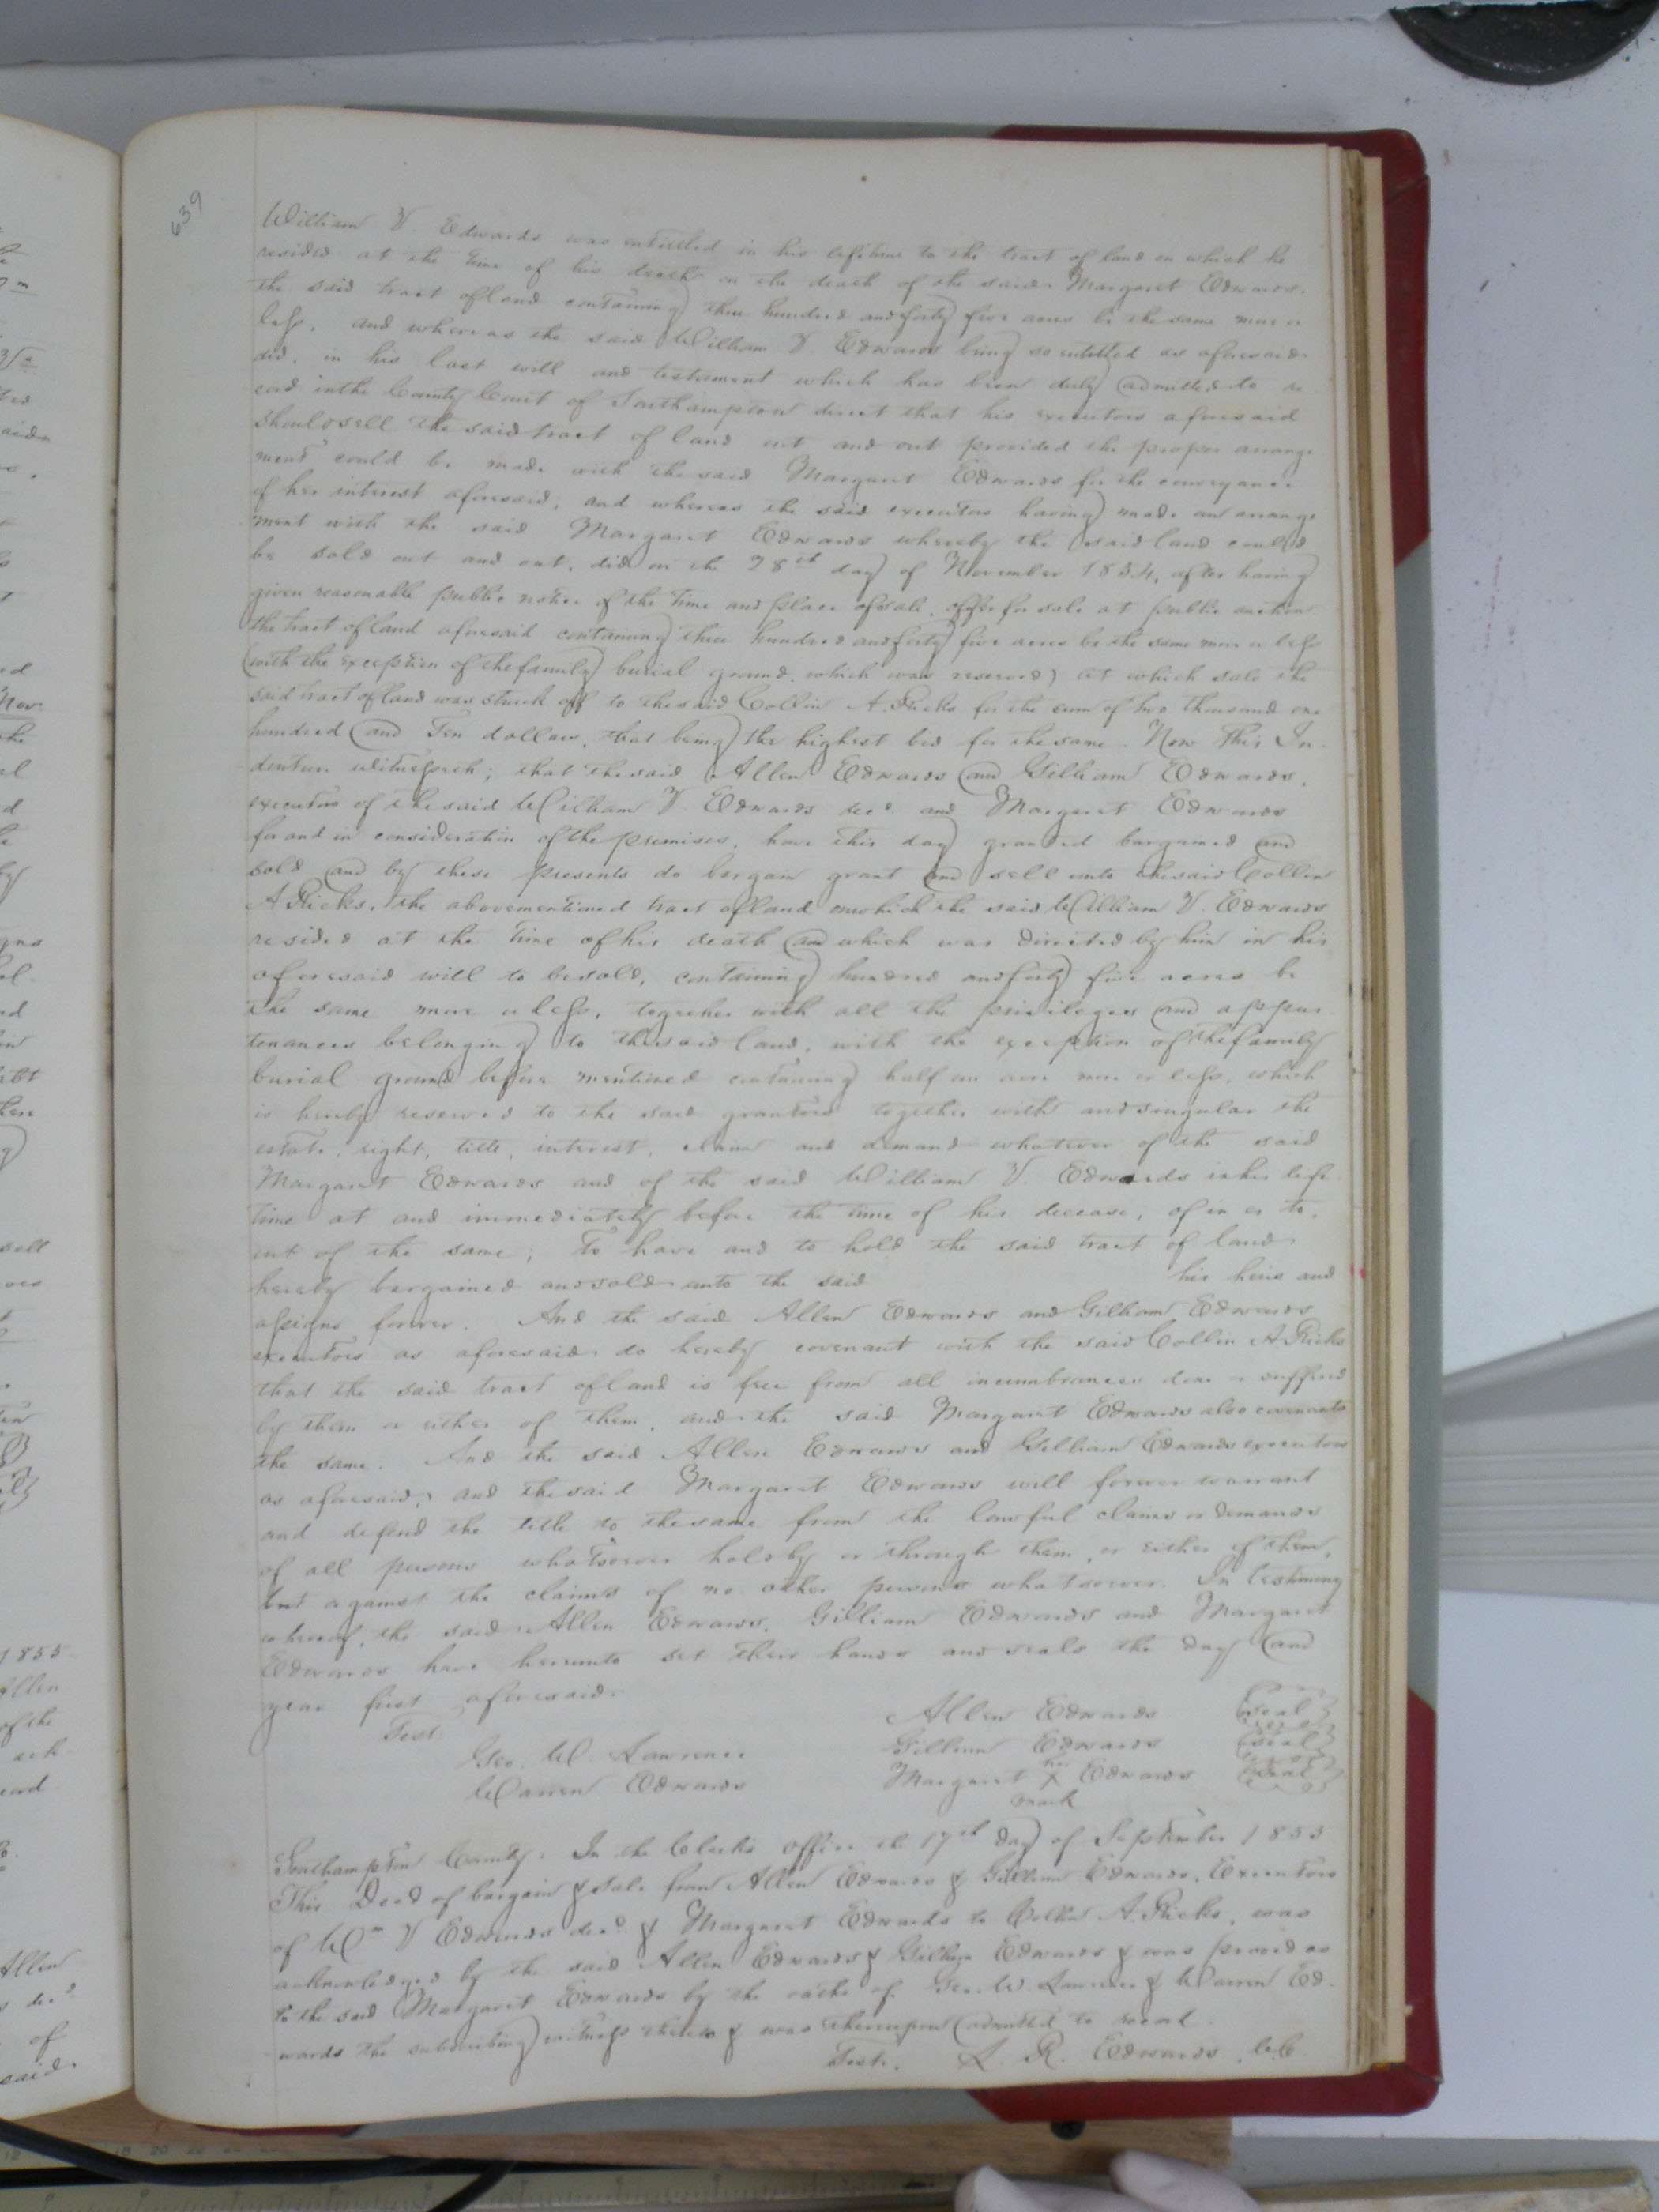 639
William V. Edwards was entittled in his lifetime to the tract of land on which he
resided at the time of his death on the death of the said Margaret Edwards.
the said tract of land containing three hundred and forty five acres be the same more or
less. and whereas the said William V. Edwards being so entitled as aforesaid
did. in his last will and testament which has been duly admitted to re
cord in the County Court of Southampton direct that his executors aforesaid
should sell the said tract of land out and out provided the proper arrange
ment could be made with the said Margaret Edwards for the conveyance
of her interest aforesaid; and whereas the said executors having made an arrange
ment with the said Margaret Edwards whereby the said land could
be sold out and out, did on the 28th day of November 1854, after having
given reasonable public notice of the time and place of sale, offer for sale at public auction
the tract of land aforesaid containing three hundred and forty five acres be the same more or less
(with the exception of the family burial ground, which was reserved) at which sale the
said tract of land was struck off to the said Collin A. Ricks for the sum of two thousand one
hundred and Ten dollars, that being the highest bid for the same. Now This In
denture witnesseth; that the said Allen Edwards and Gilliam Edwards,
executors of the said William V. Edwards decd. and Margaret Edwards
for and in consideration of the premises, have this day granted bargained and
sold and by these presents do bargain grant and sell unto the said Collin
A Ricks, the abovementioned tract of land on which the said William V. Edwards
resided at the time of his death and which was directed by him in his
aforesaid will to be sold, containing hundred and forty five acres be
the same more or less, together with all the privileges and appur
tenances belonging to the said land, with the exception of the family
burial ground before mentioned containing half an acre more or less, which
is hereby reserved to the said grantors together with and singular the
estate, right, title, interest, claim and demand whatever of the said
Margaret Edwards and of the said William V. Edwards in his life
time at and immediately before the time of his decease, of in or to.
out of the same; To have and to hold the said tract of land
hereby bargained and sold unto the said his heirs and
assigns forever. And the said Allen Edwards and Gilliam Edwards
executors as aforesaid do hereby covenant with the said Collin A Ricks
that the said tract of land is free from all incumbrances done or suffered
by them or either of them, and the said Margaret Edwards also covenants
the same. And the said Allen Edwards and Gilliam Edwards executors
as aforesaid, and the said Margaret Edwards will forever warrant
and defend the title to the same from the lawful claims or demands
of all persons whatsoever hold by or through them, or either of them,
but against the claims of no other persons whatsoever. In testimony
whereof, the said Allen Edwards, Gilliam Edwards and Margaret
Edwards have hereunto set their hands and seals the day and
year first aforesaid.
Allen Edwards {seal}
Test.
Geo. W. Lawrence Gilliam Edwards {seal}
Warren Edwards Margaret her X mark Edwards {seal}
Southampton County. In the Clerks office the 17th day of September 1855
This Deed of bargain & sale from Allen Edwards & Gilliam Edwards, Executors
of Wm V Edwards decd. & Margaret Edwards to Collin A. Ricks, was
acknowledged by the said Allen Edwards & Gilliam Edwards & was proved as
to the said Margaret Edwards by the oaths of Geo. W Lawrence & Warren Ed-
wards the subscribing witness thereto & was thereupon admitted to record.
Test. L. R. Edwards, C.C.